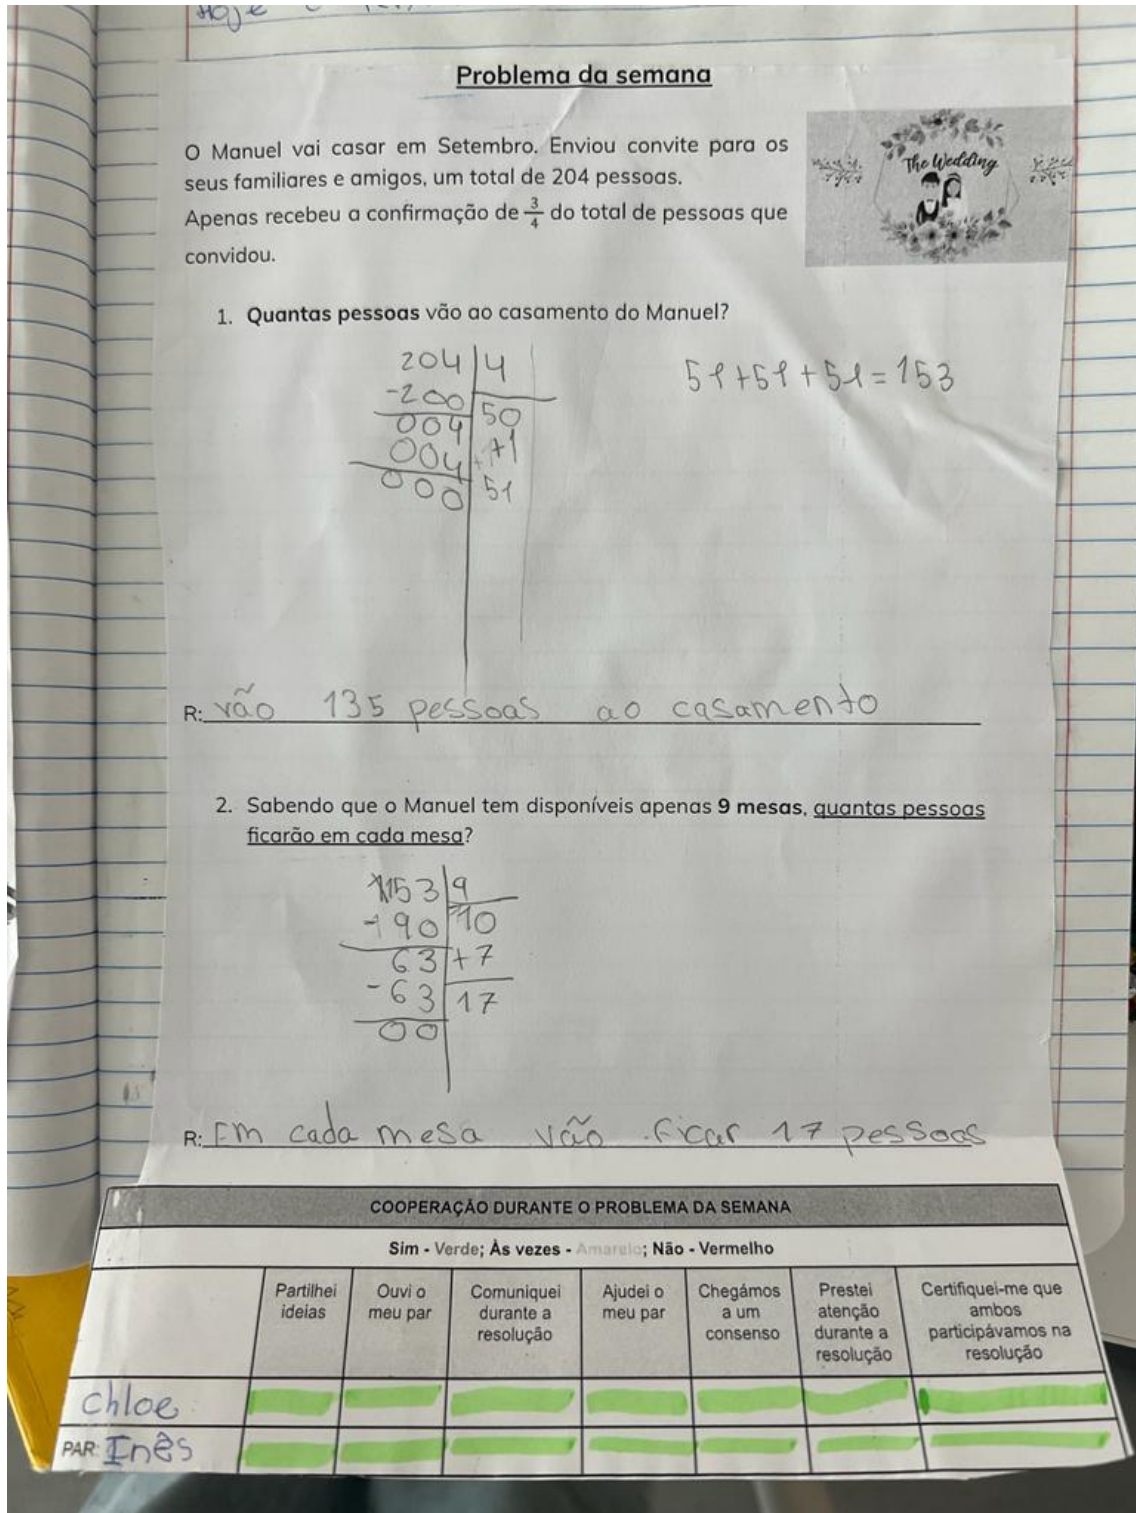 Hoje
Problema da semana
O Manuel vai casar em Setembro. Enviou convite para os
seus familiares e amigos, um total de 204 pessoas.
Apenas recebeu a confirmação de 3/4 do total de pessoas que
convidou.
The Wedding
1. Quantas pessoas vão ao casamento do Manuel?
204 | 4
-200 | 50
004 | +1
004 | 51
000
51+51+51=153
R: vão 135 pessoas ao casamento
2. Sabendo que o Manuel tem disponíveis apenas 9 mesas, quantas pessoas
ficarão em cada mesa?
153 | 9
-90 | 10
63 | +7
-63 | 17
00
R: Em cada mesa vão ficar 17 pessoas
COOPERAÇÃO DURANTE O PROBLEMA DA SEMANA
Sim - Verde; Às vezes - Amarelo; Não - Vermelho
Partilhei ideias | Ouvi o meu par | Comuniquei durante a resolução | Ajudei o meu par | Chegámos a um consenso | Prestei atenção durante a resolução | Certifiquei-me que ambos participávamos na resolução
Chloe
PAR: Inês